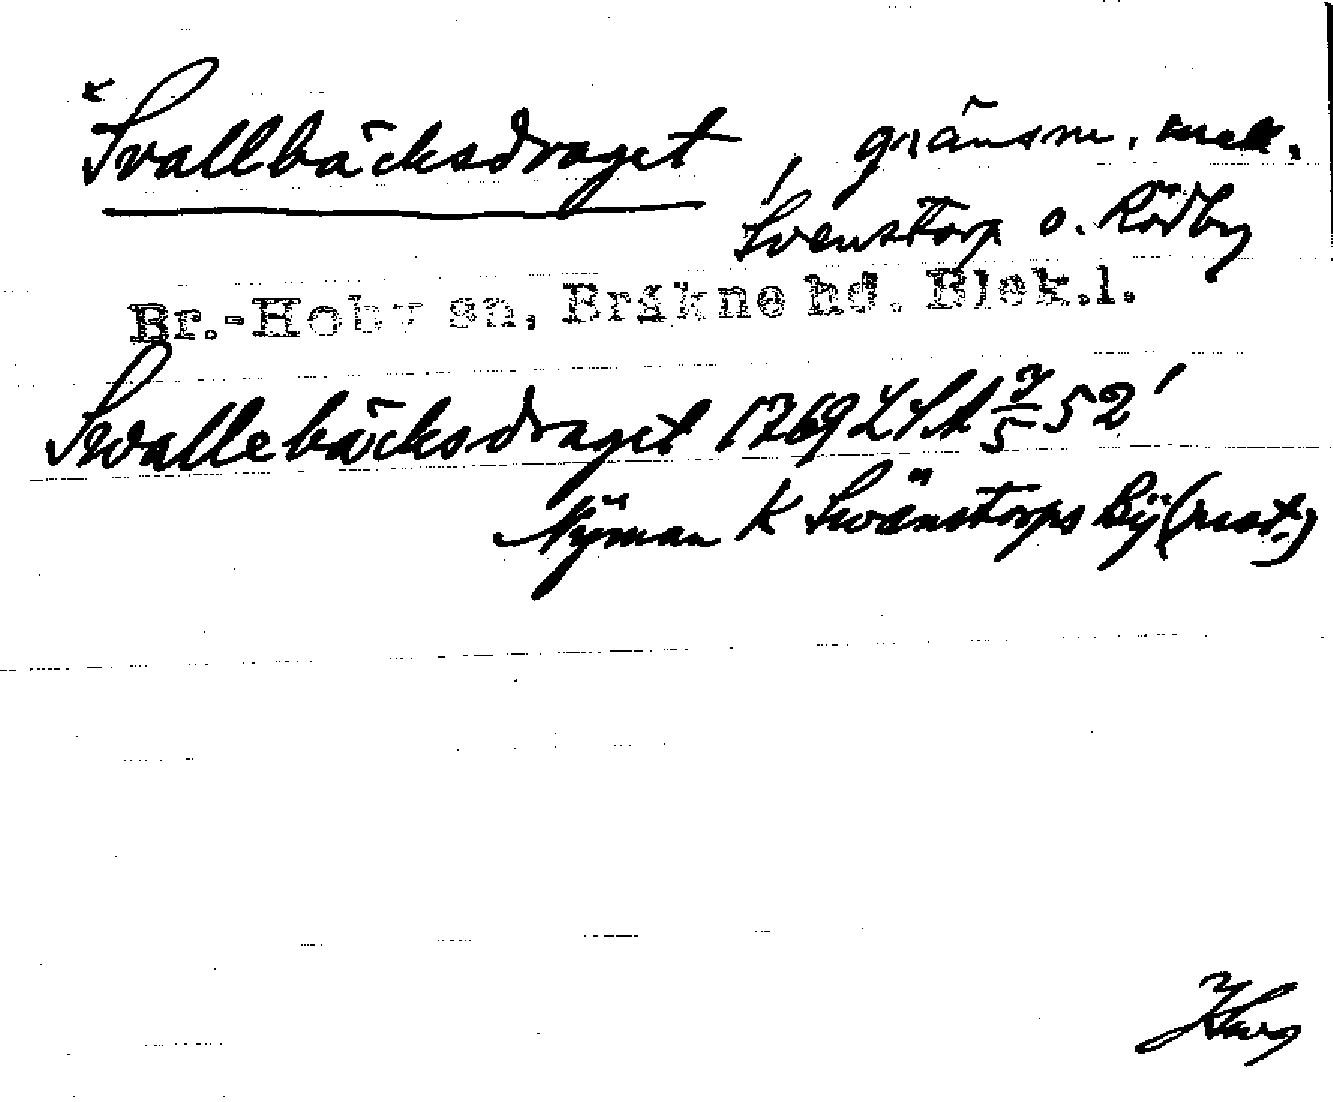 * Svallbäcksdraget, gränsm. mell.
Svenstorp o. Rödby
Br.-Hoby sn, Bräkne hd. Blek.l.
Swallebäcksdraget 1769 LSA 7/5 52'
Nÿman K Swänstorps Bÿ (rest.)